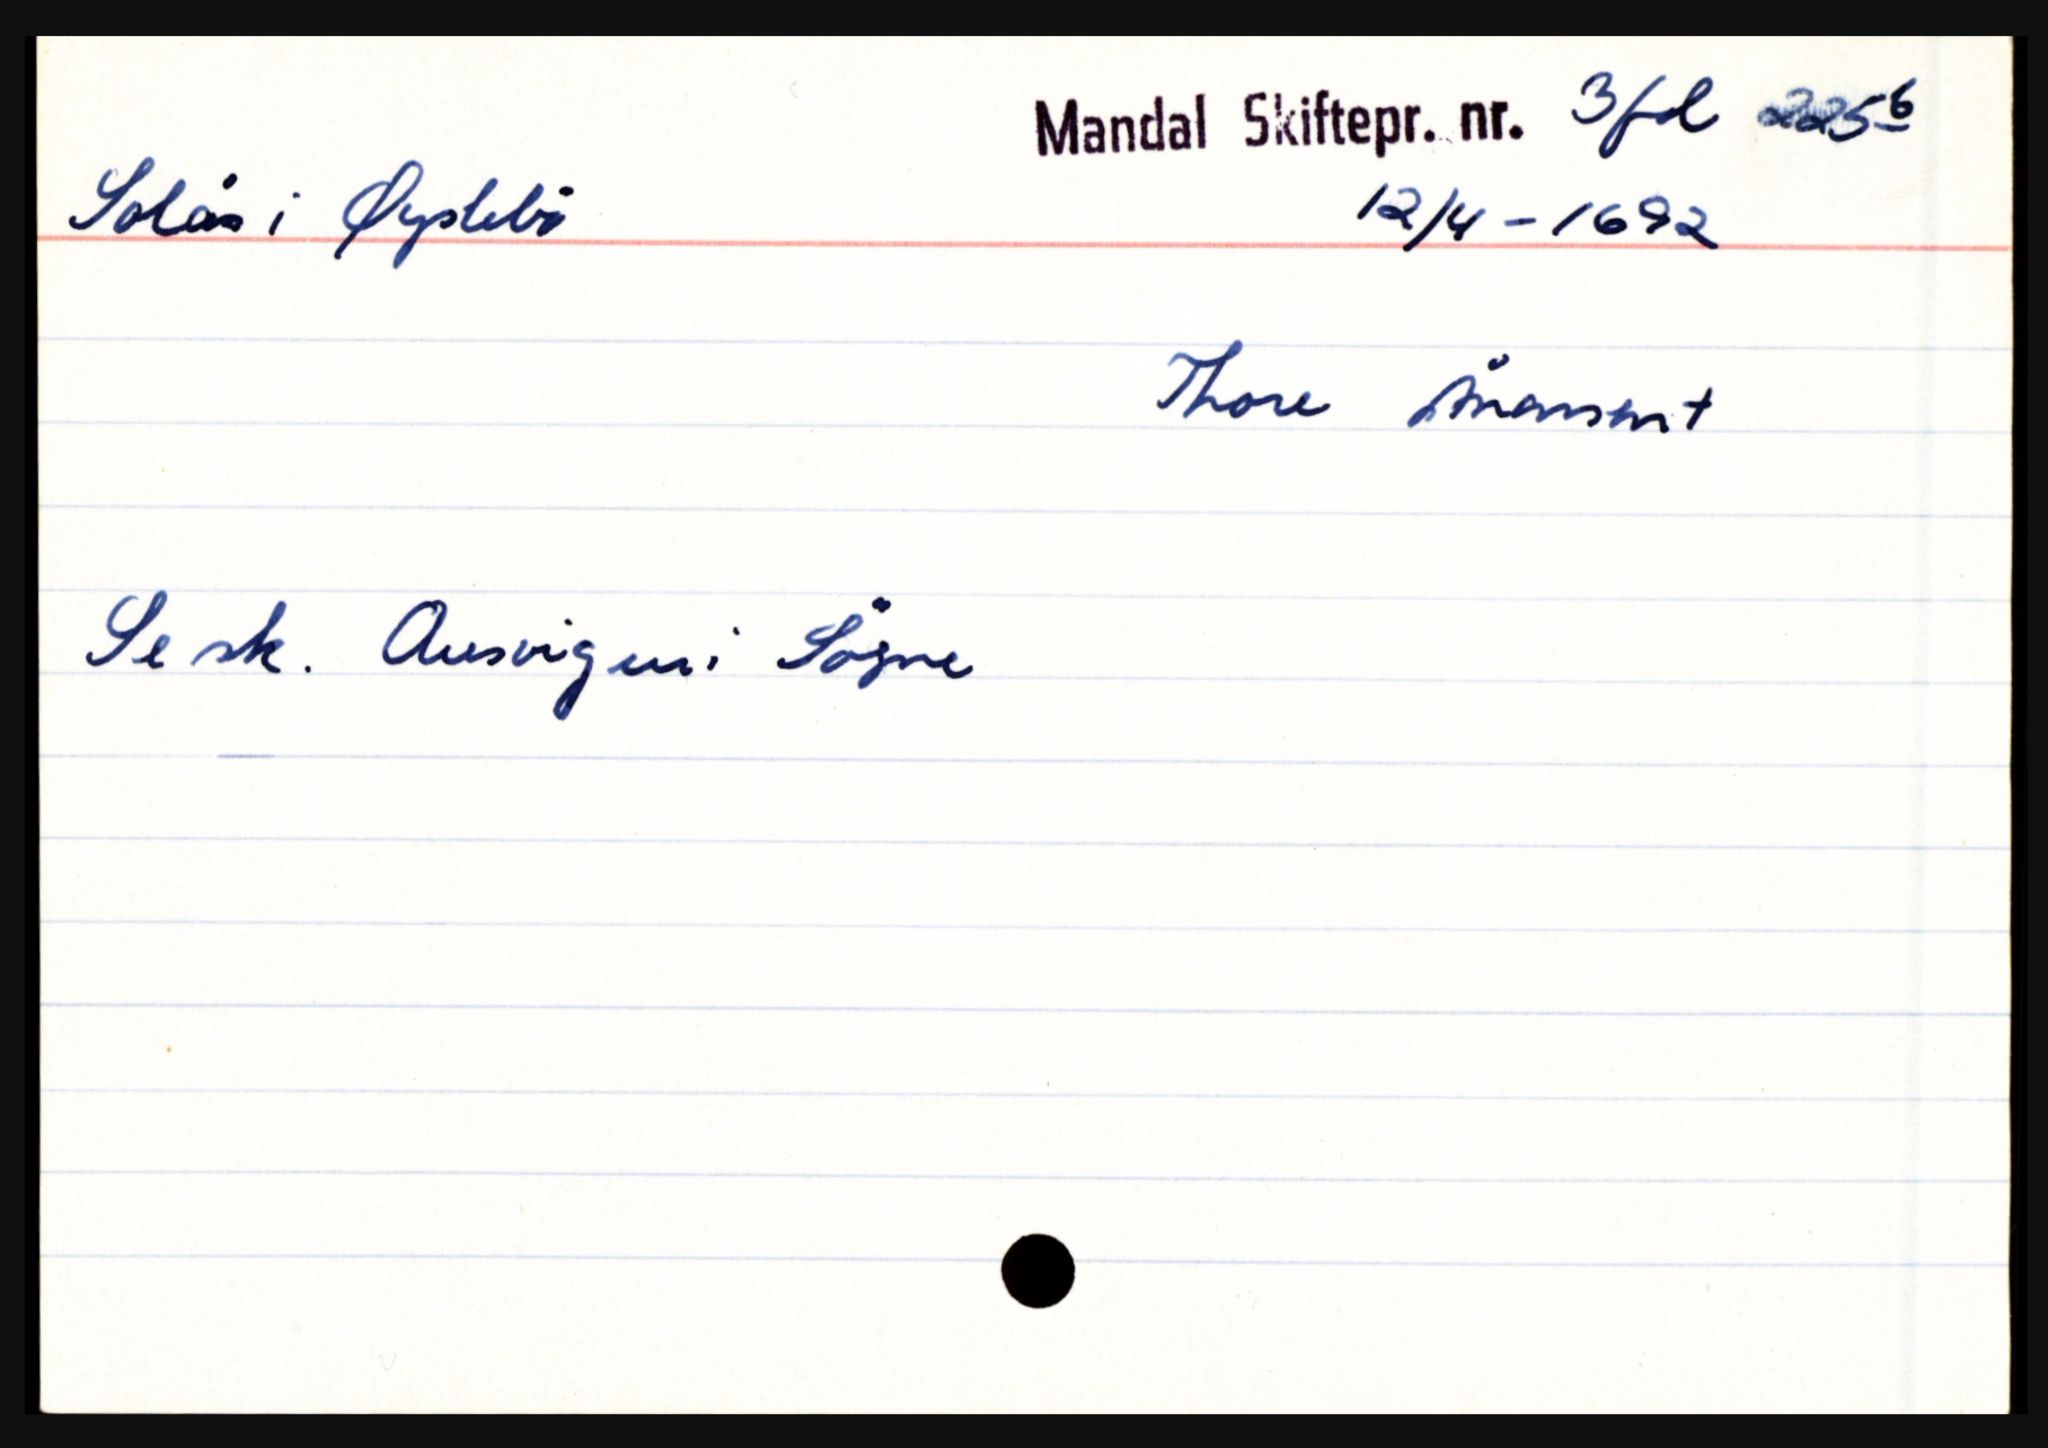 Mandal Skiftepr. nr. 3 fol
Solås i Øyslebö
12/4 - 1692
Thore Ånensen +
Se sk. Ausvigen i Sögne